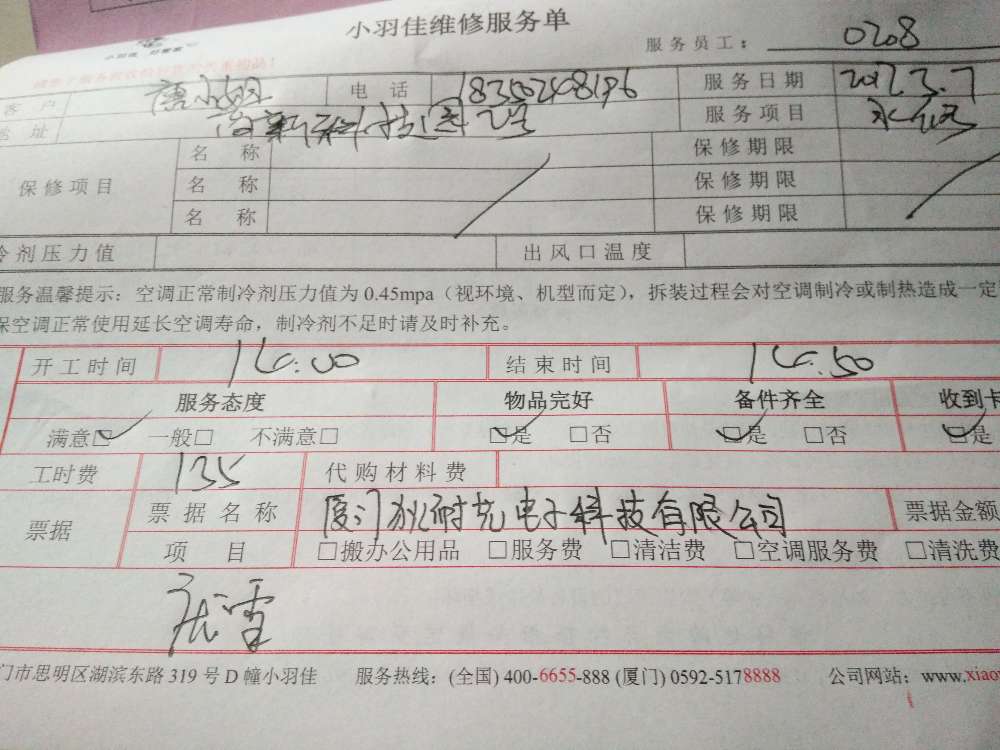 小羽佳维修服务单
服务员工： 0208
客 户 电 话 18350248196 服务日期 2017.3.7
地 址 高新科技园 2号 服务项目
保修项目 名 称 保修期限
名 称 保修期限
名 称 保修期限
冷剂压力值 出风口温度
服务温馨提示：空调正常制冷剂压力值为 0.45mpa（视环境、机型而定），拆装过程会对空调制冷或制热造成一定
保空调正常使用延长空调寿命，制冷剂不足时请及时补充。
开工时间 16:00 结束时间 16:50
服务态度 物品完好 备件齐全 收到卡
满意□ 一般□ 不满意□ □是 □否 □是 □否 □是
工时费 135 代购材料费
票据 票据名称 厦门狄耐克电子科技有限公司 票据金额
项 目 □搬办公用品 □服务费 □清洁费 □空调服务费 □清洗费
门市思明区湖滨东路 319 号 D 幢小羽佳 服务热线：(全国) 400-6655-888 (厦门) 0592-5178888 公司网站：www.xiao